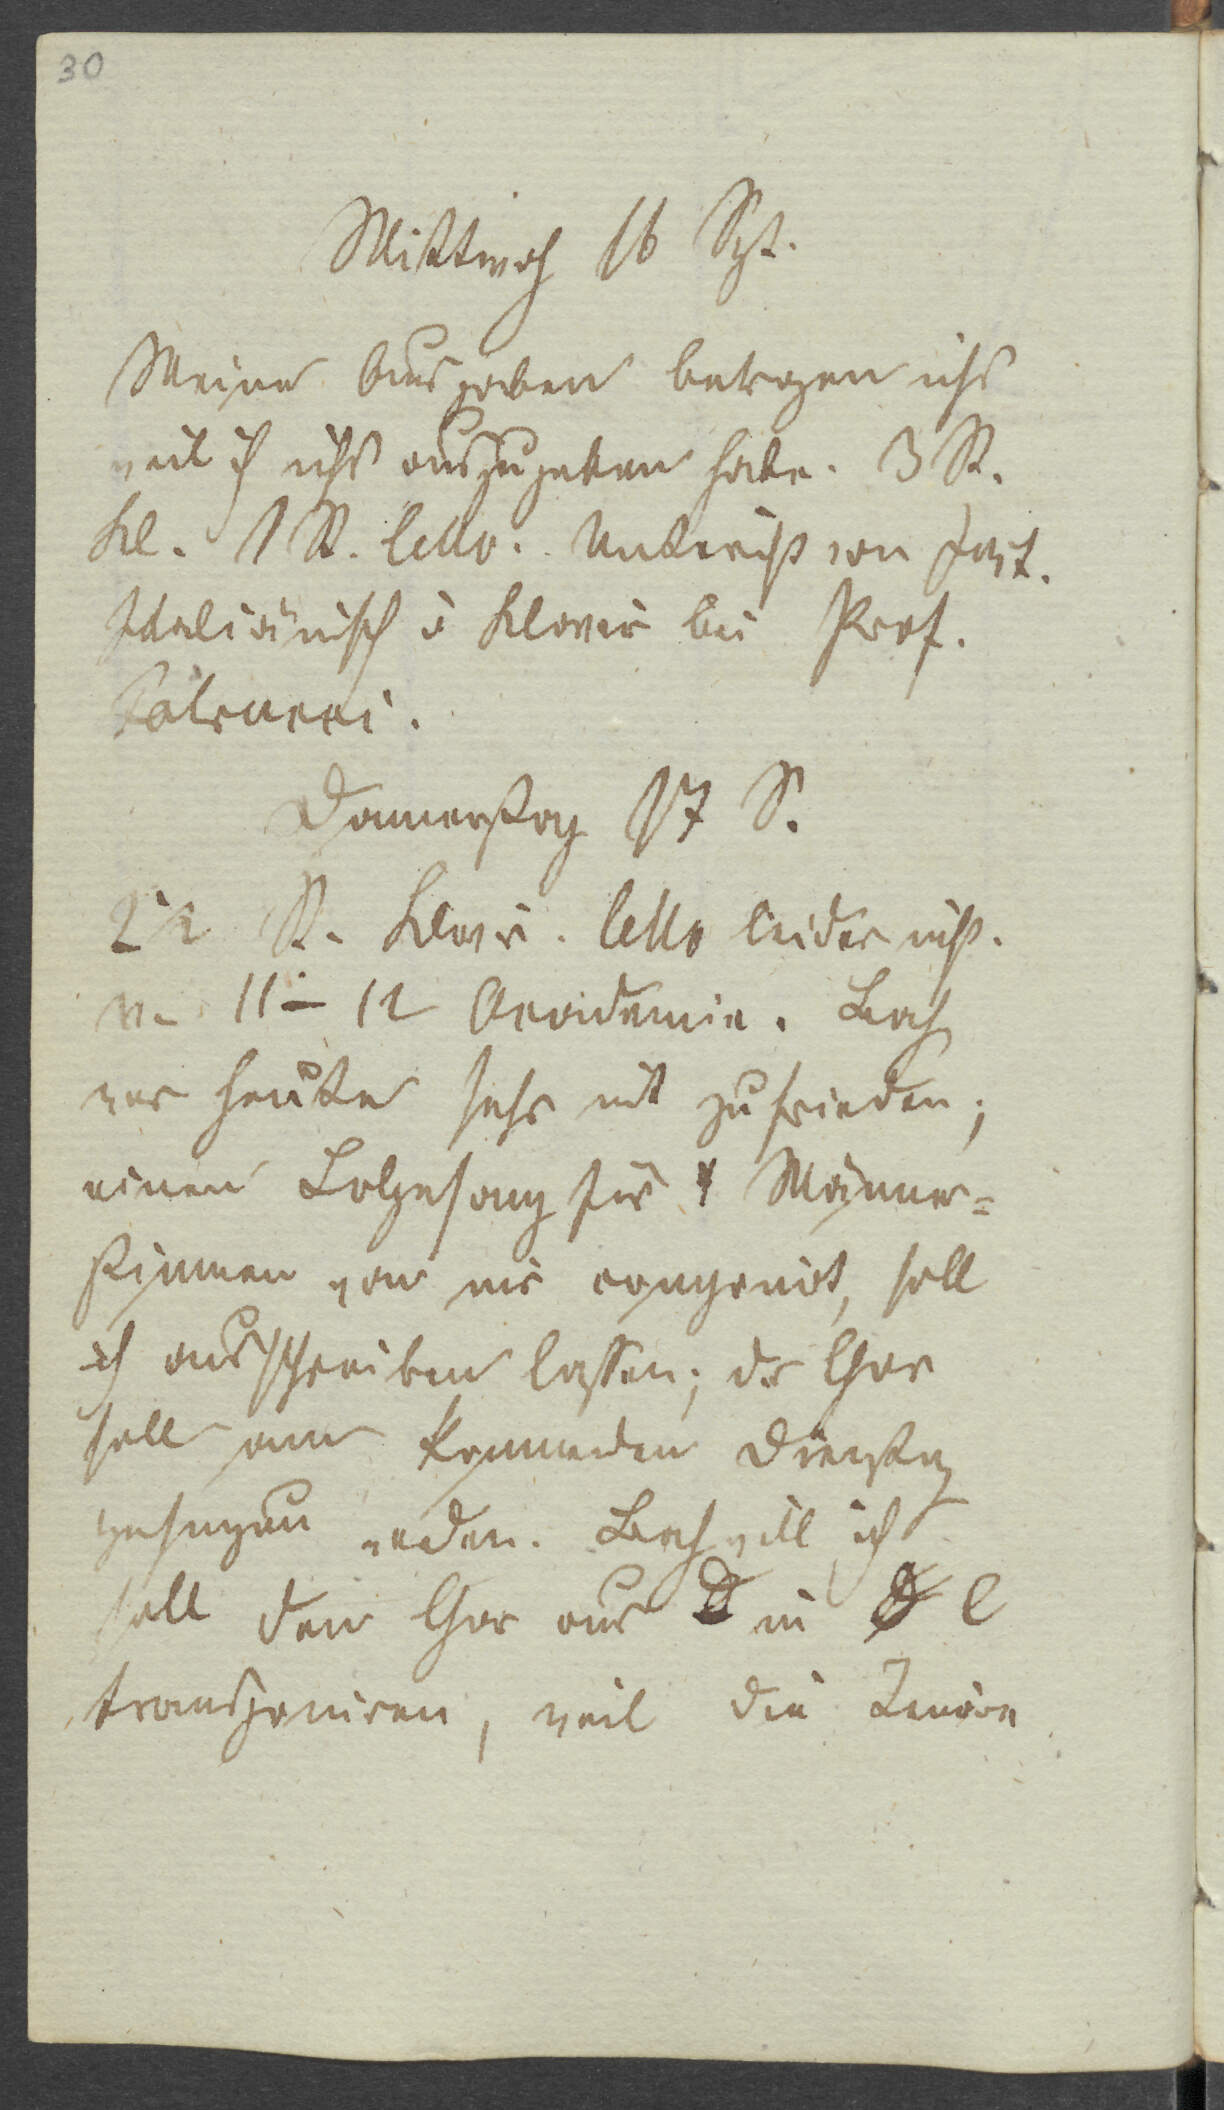 30
Mittwoch 16 Spt.
Meine Ausgaben betragen nichts
weil ich nichts auszugeben habe. 3 St.
Kl. 1 St. Cello. Unterricht von
Italiänisch u Klavir bei Prof.
Donnerstag 17 S.
2½ St. Klavir. Cello leider nicht.
v. 11–12 Academie. Bach
war heute sehr mit zufrieden;
einen Lobgesang für 4 Männer=
stimmen von mir componirt, soll
ich ausschreiben lassen; der Chor
soll am kommeden Dienstag
gesungen weden. Bach will ich
soll den Chor aus D in C
transponiren, weil die Tenöre